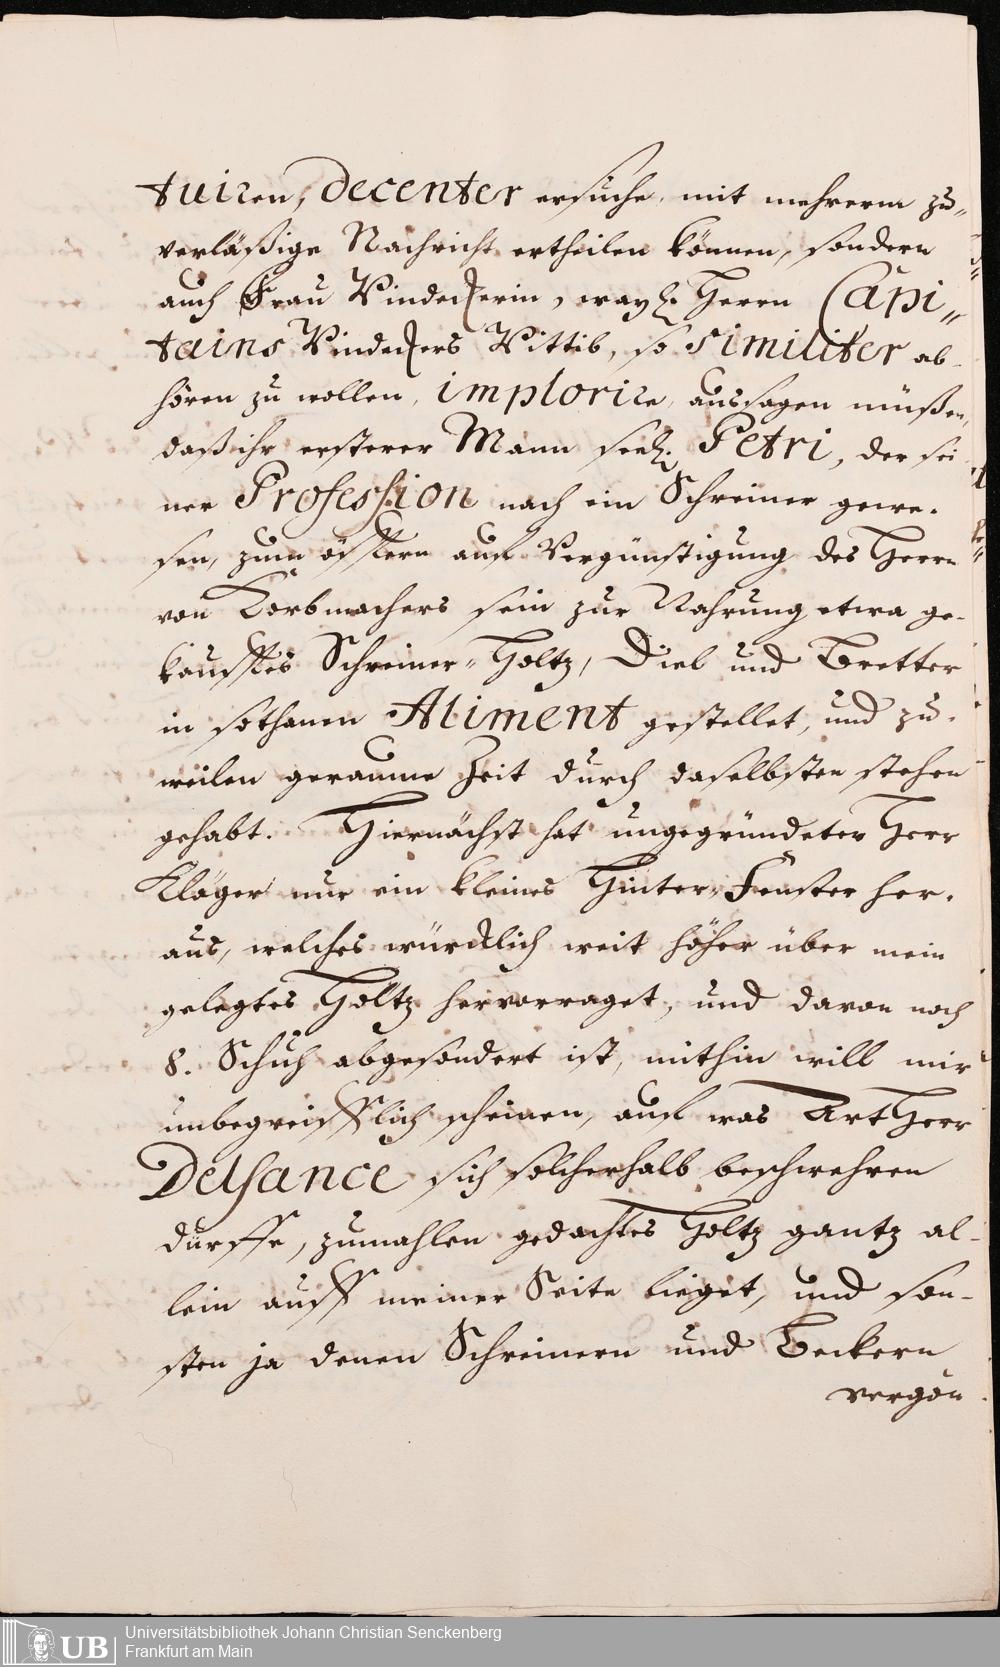 tuiren, decenter ersuche, mit mehrerm zu„
verläßige Nachricht ertheilen können, sondern
auch Frau Vindeckerin, wayl. Herrn Capi„
tains Vindeckers Wittib, so similiter ab-
hören zu wollen, implorire, aussagen müßen,
daß ihr ersterer Mann seel. Petri, der sei
ner Profession nach ein Schreiner gewe-
sen, zum öfftern auf Vergünstigung des Herrn
von Korbmachers sein zur Nahrung etwa ge-
kaufftes Schreiner-Holtz, Diel und Bretter
in sothanen Aliment gestellet, und zu-
weilen geraume Zeit durch daselbsten stehen
gehabt. Hiernächst hat ungegründeter Herr
Kläger nur ein kleines Hinter-Fenster her-
aus, welches würcklich weit höher über mein
gelegtes Holtz hervorraget, und davon noch
8. Schuh abgesondert ist, mithin will mir
unbegreifflich scheinen, auf was Art Herr
Delsance sich solcherhalb beschwehren
durffe, zumahlen gedachtes Holtz gantz al-
lein auff meiner Seite lieget, und son-
sten ja denen Schreinern und Beckern
vergön
UB Universitätsbibliothek Johann Christian Senckenberg
Frankfurt am Main